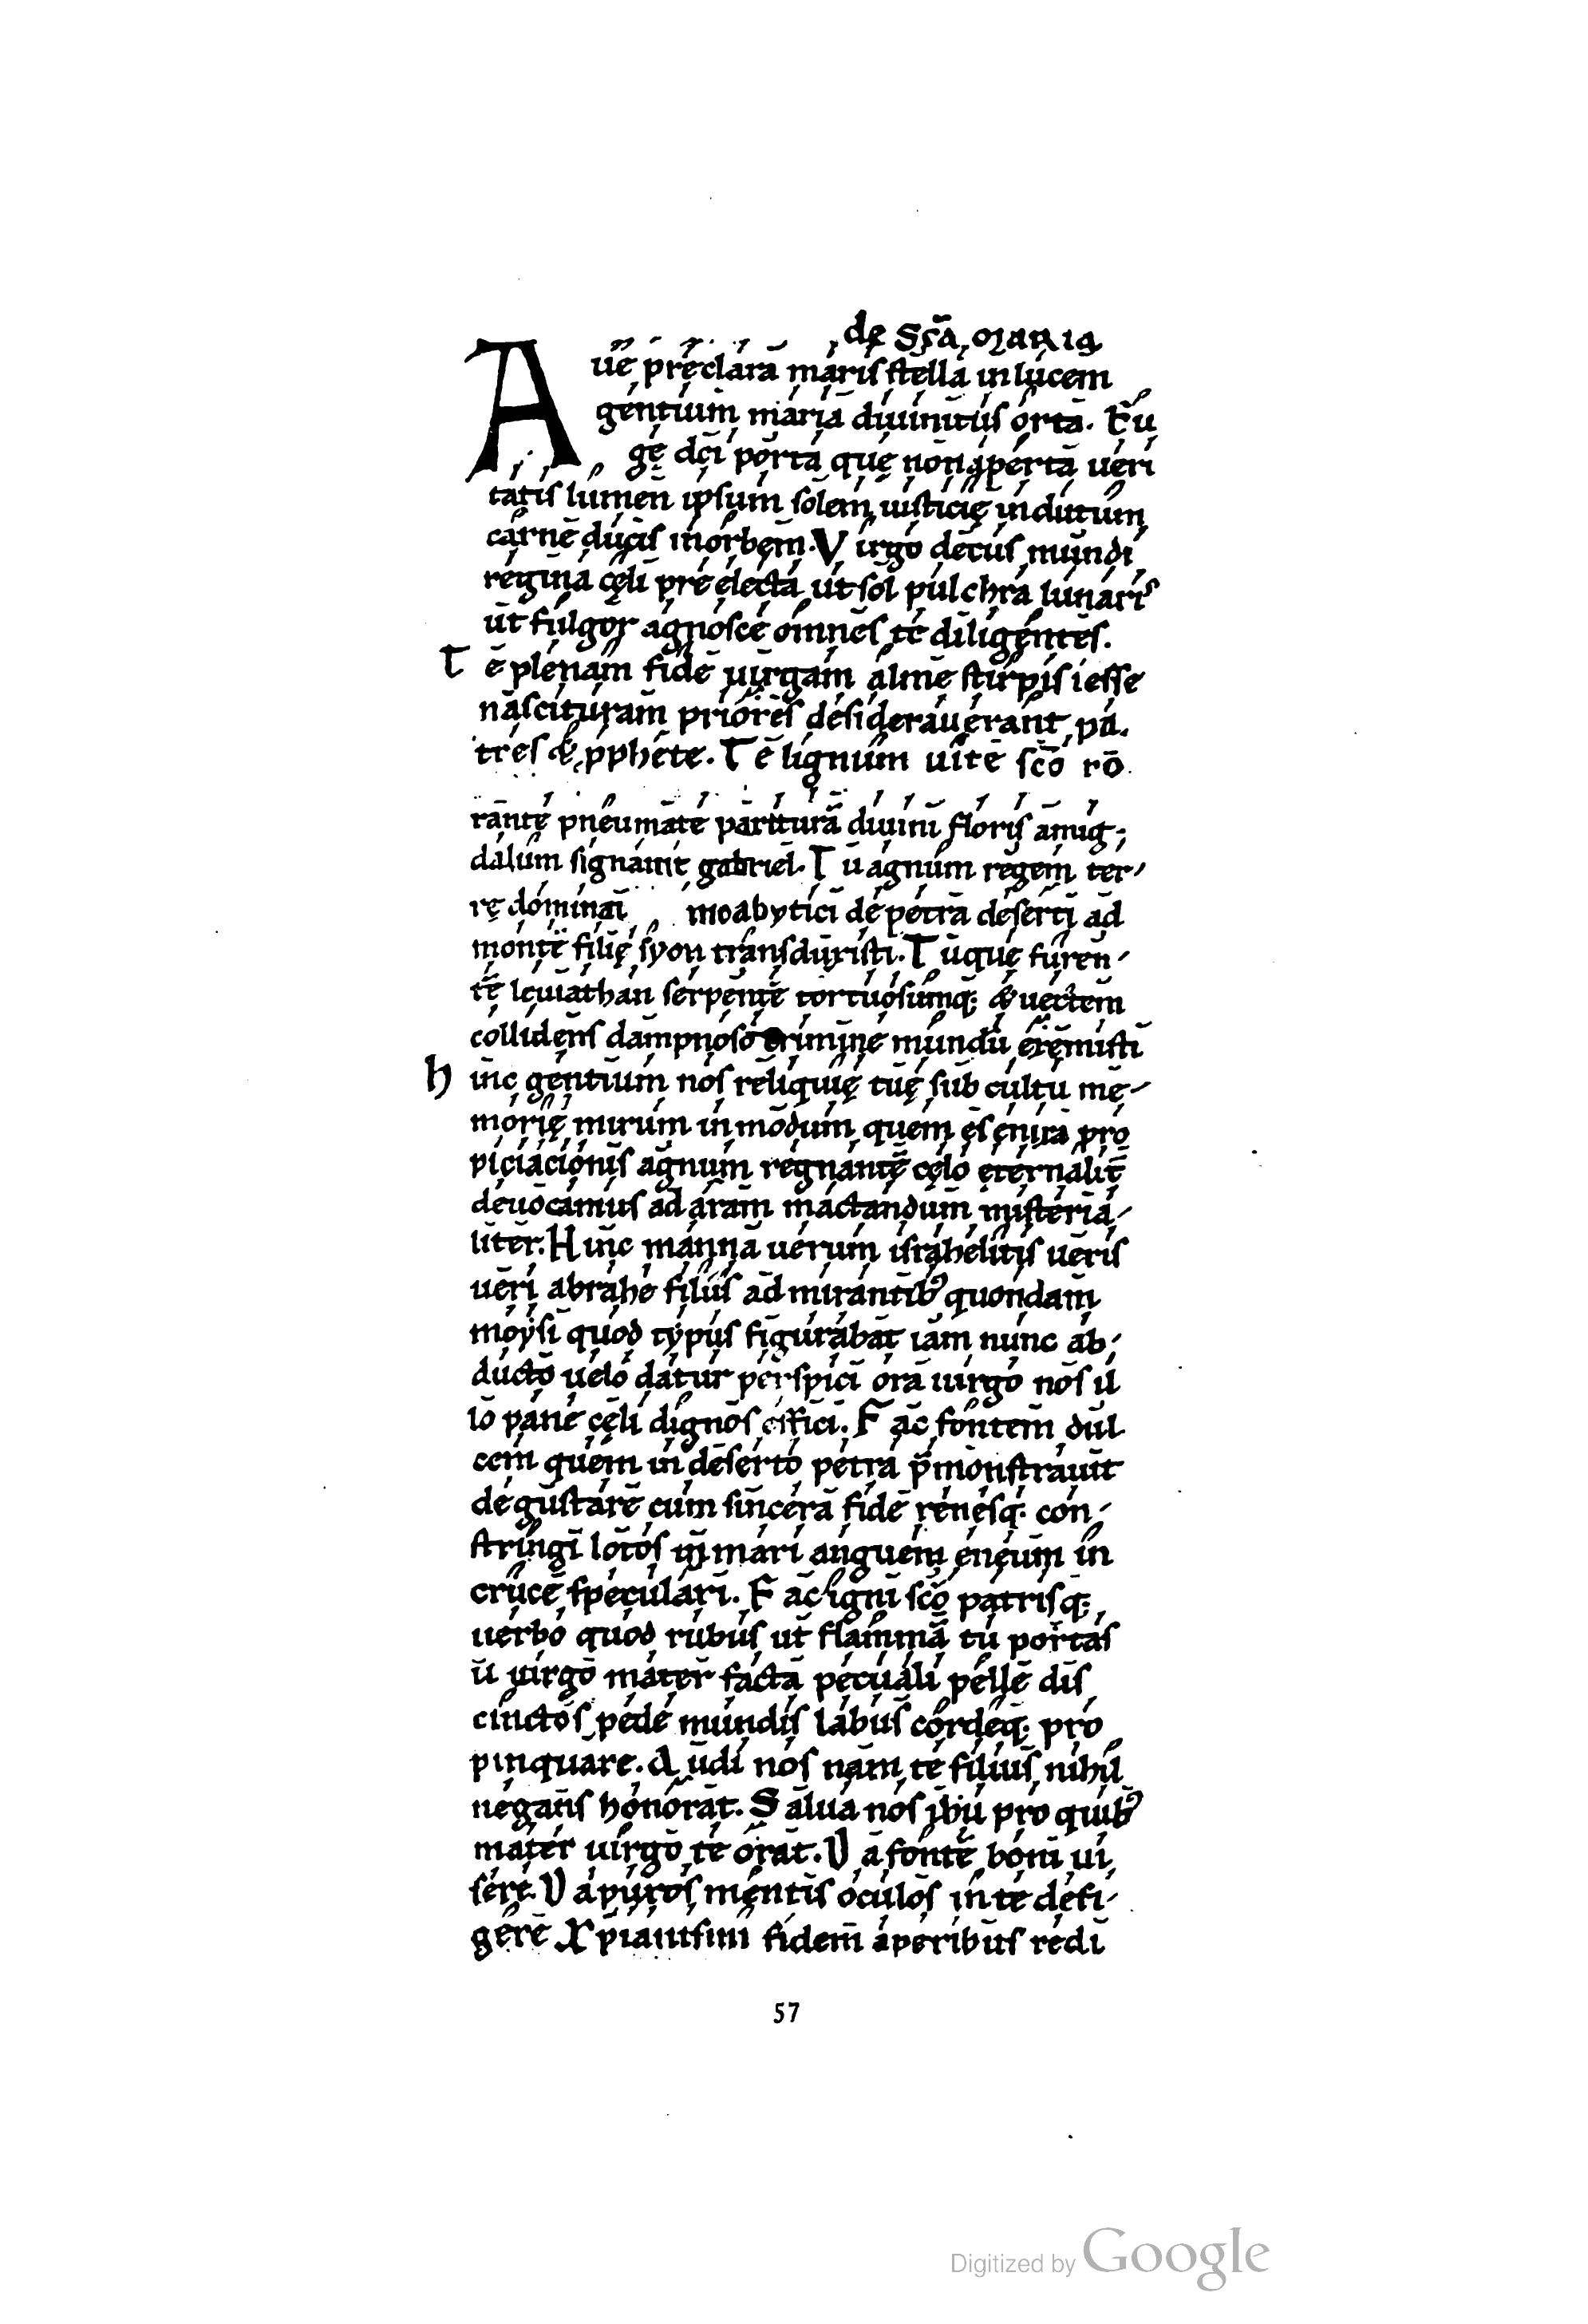 de Sc̃a MARIA
Aue pręclara maris stella in lucem
gentium maria diuinitus orta. Eu
ge dei porta quę non aperta ueri
tatis lumen ipsum solem iusticię indutum
carne ducis in orbem. Virgo decus mundi
regina cęli pre electa ut sol pulchra lunaris
ut fulgor agnosce omnes te diligentes.
Te plenam fide uirgam alme stirpis iesse
nascituram priores desiderauerant pa
tres & pphete. Te lignum uite sc̃o rō
rante pneumate parituram diuini floris amig-
dalum signauit gabriel. Tu agnum regem ter-
rę dominat moabytici de petra deserti ad
monte filię syon transduxisti. Tuque furen-
tē leuiathan serpentē tortuosumq; & uectem
collidens dampnoso crimine mundū exemisti
hinc gentium nos reliquię tuę sub cultu me-
morię mirum in modum quem es enixa pro
piciacionis agnum regnantē cęlo eternalit̄
deuocamus ad aram mactandum misteria-
liter. Hinc manna uerum israhelitis ueris
ueri abrahe filiis admirantibꝰ quondam
moysi quod typus figurabat iam nunc ab-
ducto uelo datur perspici ora uirgo nos il
lo pane cęli dignos effici. Fac fontem dul
cem quem in deserto petra p̄monstrauit
degustare cum sincera fide renesq; con-
stringi lotos in mari anguem eneum in
cruce speculari. Fac igni sc̃o patrisq;
uerbo quod rubus ut flamma tu portas
ti uirgo mater facta pecuali pelle dis
cinctos pede mundis labiis cordeq; pro
pinquare. Audi nos nam te filius nihil
negans honorat. Salua nos ihū pro quibꝰ
mater uirgo te orat. Da fonte boni ui
sere. Da puros mentis oculos in te defi-
gere Xp̄ianismi fidem operibus redi
57
Digitized by Google